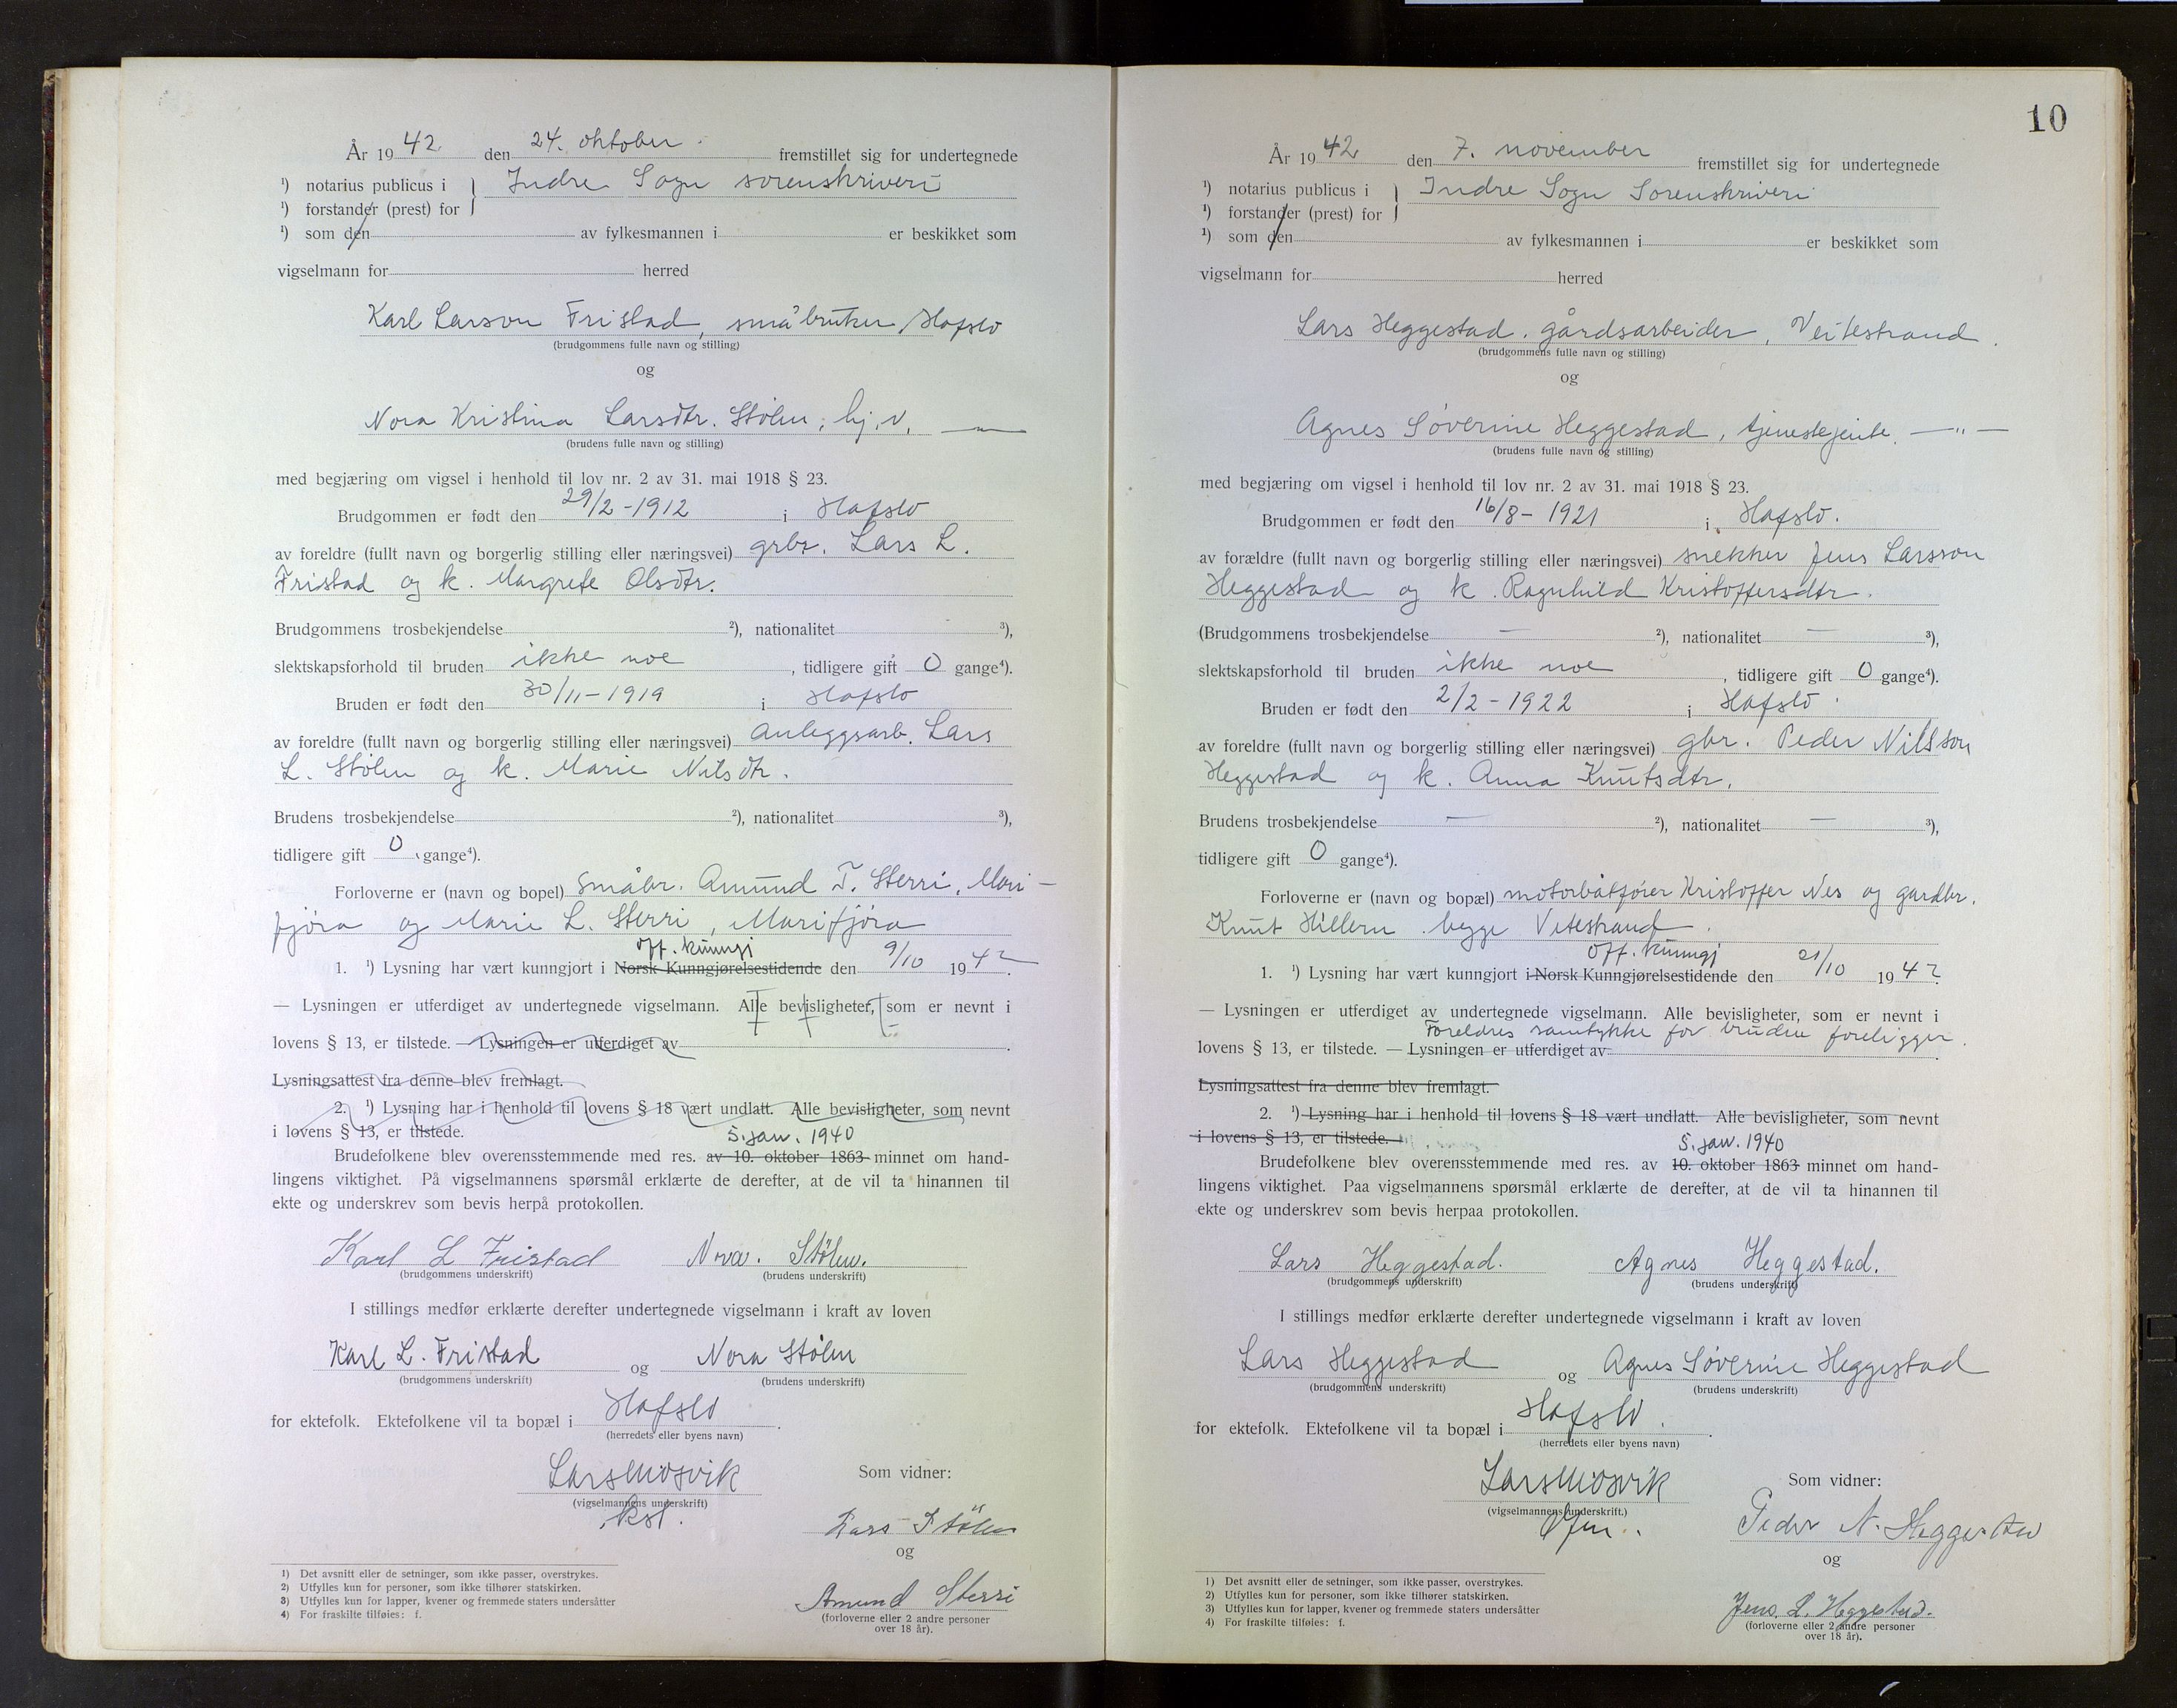 År 1942 den 24. oktober. fremstillet sig for undertegnede
¹) notarius publicus i } Indre Sogn sorenskriveri
¹) forstander (prest) for
¹) som den av fylkesmannen i er beskikket som
vigselmann for herred
Karl Larson Fristad, småbruker, Hafslo
(brudgommens fulle navn og stilling)
og
Nora Kristina Larsdtr. Stølen, hj.v. —"—
(brudens fulle navn og stilling)
med begjæring om vigsel i henhold til lov nr. 2 av 31. mai 1918 § 23.
Brudgommen er født den 29/2-1912 i Hafslo
av foreldre (fullt navn og borgerlig stilling eller næringsvei) grbr. Lars L.
Fristad og k. Margrete Olsdtr.
Brudgommens trosbekjendelse ²), nationalitet ³),
slektskapsforhold til bruden ikke noe, tidligere gift 0 gange⁴).
Bruden er født den 30/11-1919 i Hafslo
av foreldre (fullt navn og borgerlig stilling eller næringsvei) Anleggsarb. Lars
L. Stølen og k. Marie Nilsdtr.
Brudens trosbekjendelse ²), nationalitet ³),
tidligere gift 0 gange⁴).
Forloverne er (navn og bopel) småbr. Amund T. Sterri, Mari-
fjøra og Marie L. Sterri, Marifjøra
off. kunngj
1. ¹) Lysning har vært kunngjort i Norsk Kunngjørelsestidende den 9/10 1942.
— Lysningen er utferdiget av undertegnede vigselmann. Alle bevisligheter, som er nevnt i
lovens § 13, er tilstede. — Lysningen er utferdiget av .
Lysningsattest fra denne blev fremlagt.
2. ¹) Lysning har i henhold til lovens § 18 vært undlatt. Alle bevisligheter, som nevnt
i lovens § 13, er tilstede.
5. jan. 1940
Brudefolkene blev overensstemmende med res. av 10. oktober 1863 minnet om hand-
lingens viktighet. På vigselmannens spørsmål erklærte de derefter, at de vil ta hinannen til
ekte og underskrev som bevis herpå protokollen.
Karl L Fristad Nora. Stølen.
(brudgommens underskrift) (brudens underskrift)
I stillings medfør erklærte derefter undertegnede vigselmann i kraft av loven
Karl L. Fristad og Nora Stølen
(brudgommens underskrift) (brudens underskrift)
for ektefolk. Ektefolkene vil ta bopæl i Hafslo.
(herredets eller byens navn)
Lars Mosvik Som vidner:
(vigselmannens underskrift)
kst.
Lars Stølen
og
Amund Sterri
(forloverne eller 2 andre personer
over 18 år).
1) Det avsnitt eller de setninger, som ikke passer, overstrykes.
2) Utfylles kun for personer, som ikke tilhører statskirken.
3) Utfylles kun for lapper, kvener og fremmede staters undersåtter
4) For fraskilte tilføies: f.
10
År 1942 den 7. november fremstillet sig for undertegnede
¹) notarius publicus i } Indre Sogn Sorenskriveri
¹) forstander (prest) for
¹) som den av fylkesmannen i er beskikket som
vigselmann for herred
Lars Heggestad, gårdsarbeider, Veitestrand.
(brudgommens fulle navn og stilling)
og
Agnes Søverine Heggestad, tjenestejente. —"—
(brudens fulle navn og stilling)
med begjæring om vigsel i henhold til lov nr. 2 av 31. mai 1918 § 23.
Brudgommen er født den 16/8-1921 i Hafslo.
av forældre (fullt navn og borgerlig stilling eller næringsvei) snekker Jens Larsson
Heggestad og k. Ragnhild Kristoffersdtr.
(Brudgommens trosbekjendelse — ²), nationalitet — ³),
slektskapsforhold til bruden ikke noe, tidligere gift 0 gange⁴).
Bruden er født den 2/2-1922 i Hafslo.
av foreldre (fullt navn og borgerlig stilling eller næringsvei) gbr. Peder Nilsson
Heggestad og k. Anna Knutsdtr.
Brudens trosbekjendelse — ²), nationalitet — ³),
tidligere gift 0 gange⁴).
Forloverne er (navn og bopæl) motorbåtfører Kristoffer Nes og gardbr.
Knut Hillern begge Vetestrand.
off. kunngj
1. ¹) Lysning har vært kunngjort i Norsk Kunngjørelsestidende den 21/10 1942.
— Lysningen er utferdiget av undertegnede vigselmann. Alle bevisligheter, som er nevnt i
Foreldres samtykke for bruden foreligger.
lovens § 13, er tilstede. — Lysningen er utferdiget av .
Lysningsattest fra denne blev fremlagt.
2. ¹) Lysning har i henhold til lovens § 18 vært undlatt. Alle bevisligheter, som nevnt
i lovens § 13, er tilstede.
5. jan. 1940
Brudefolkene blev overensstemmende med res. av 10. oktober 1863 minnet om hand-
lingens viktighet. Paa vigselmannens spørsmål erklærte de derefter, at de vil ta hinannen til
ekte og underskrev som bevis herpaa protokollen.
Lars Heggestad. Agnes Heggestad.
(brudgommens underskrift) (brudens underskrift)
I stillings medfør erklærte derefter undertegnede vigselmann i kraft av loven
Lars Heggestad og Agnes Søverine Heggestad
(brudgommens underskrift) (brudens underskrift)
for ektefolk. Ektefolkene vil ta bopæl i Hafslo.
(herredets eller byens navn)
Lars Mosvik Som vidner:
(vigselmannens underskrift.)
Peder N. Heggestad
og
Jens L. Heggestad.
(forloverne eller 2 andre personer
over 18 år).
1) Det avsnitt eller de setninger, som ikke passer, overstrykes.
2) Utfylles kun for personer, som ikke tilhører statskirken.
3) Utfylles kun for lapper, kvener og fremmede staters undersåtter
4) For fraskilte tilføies: f.